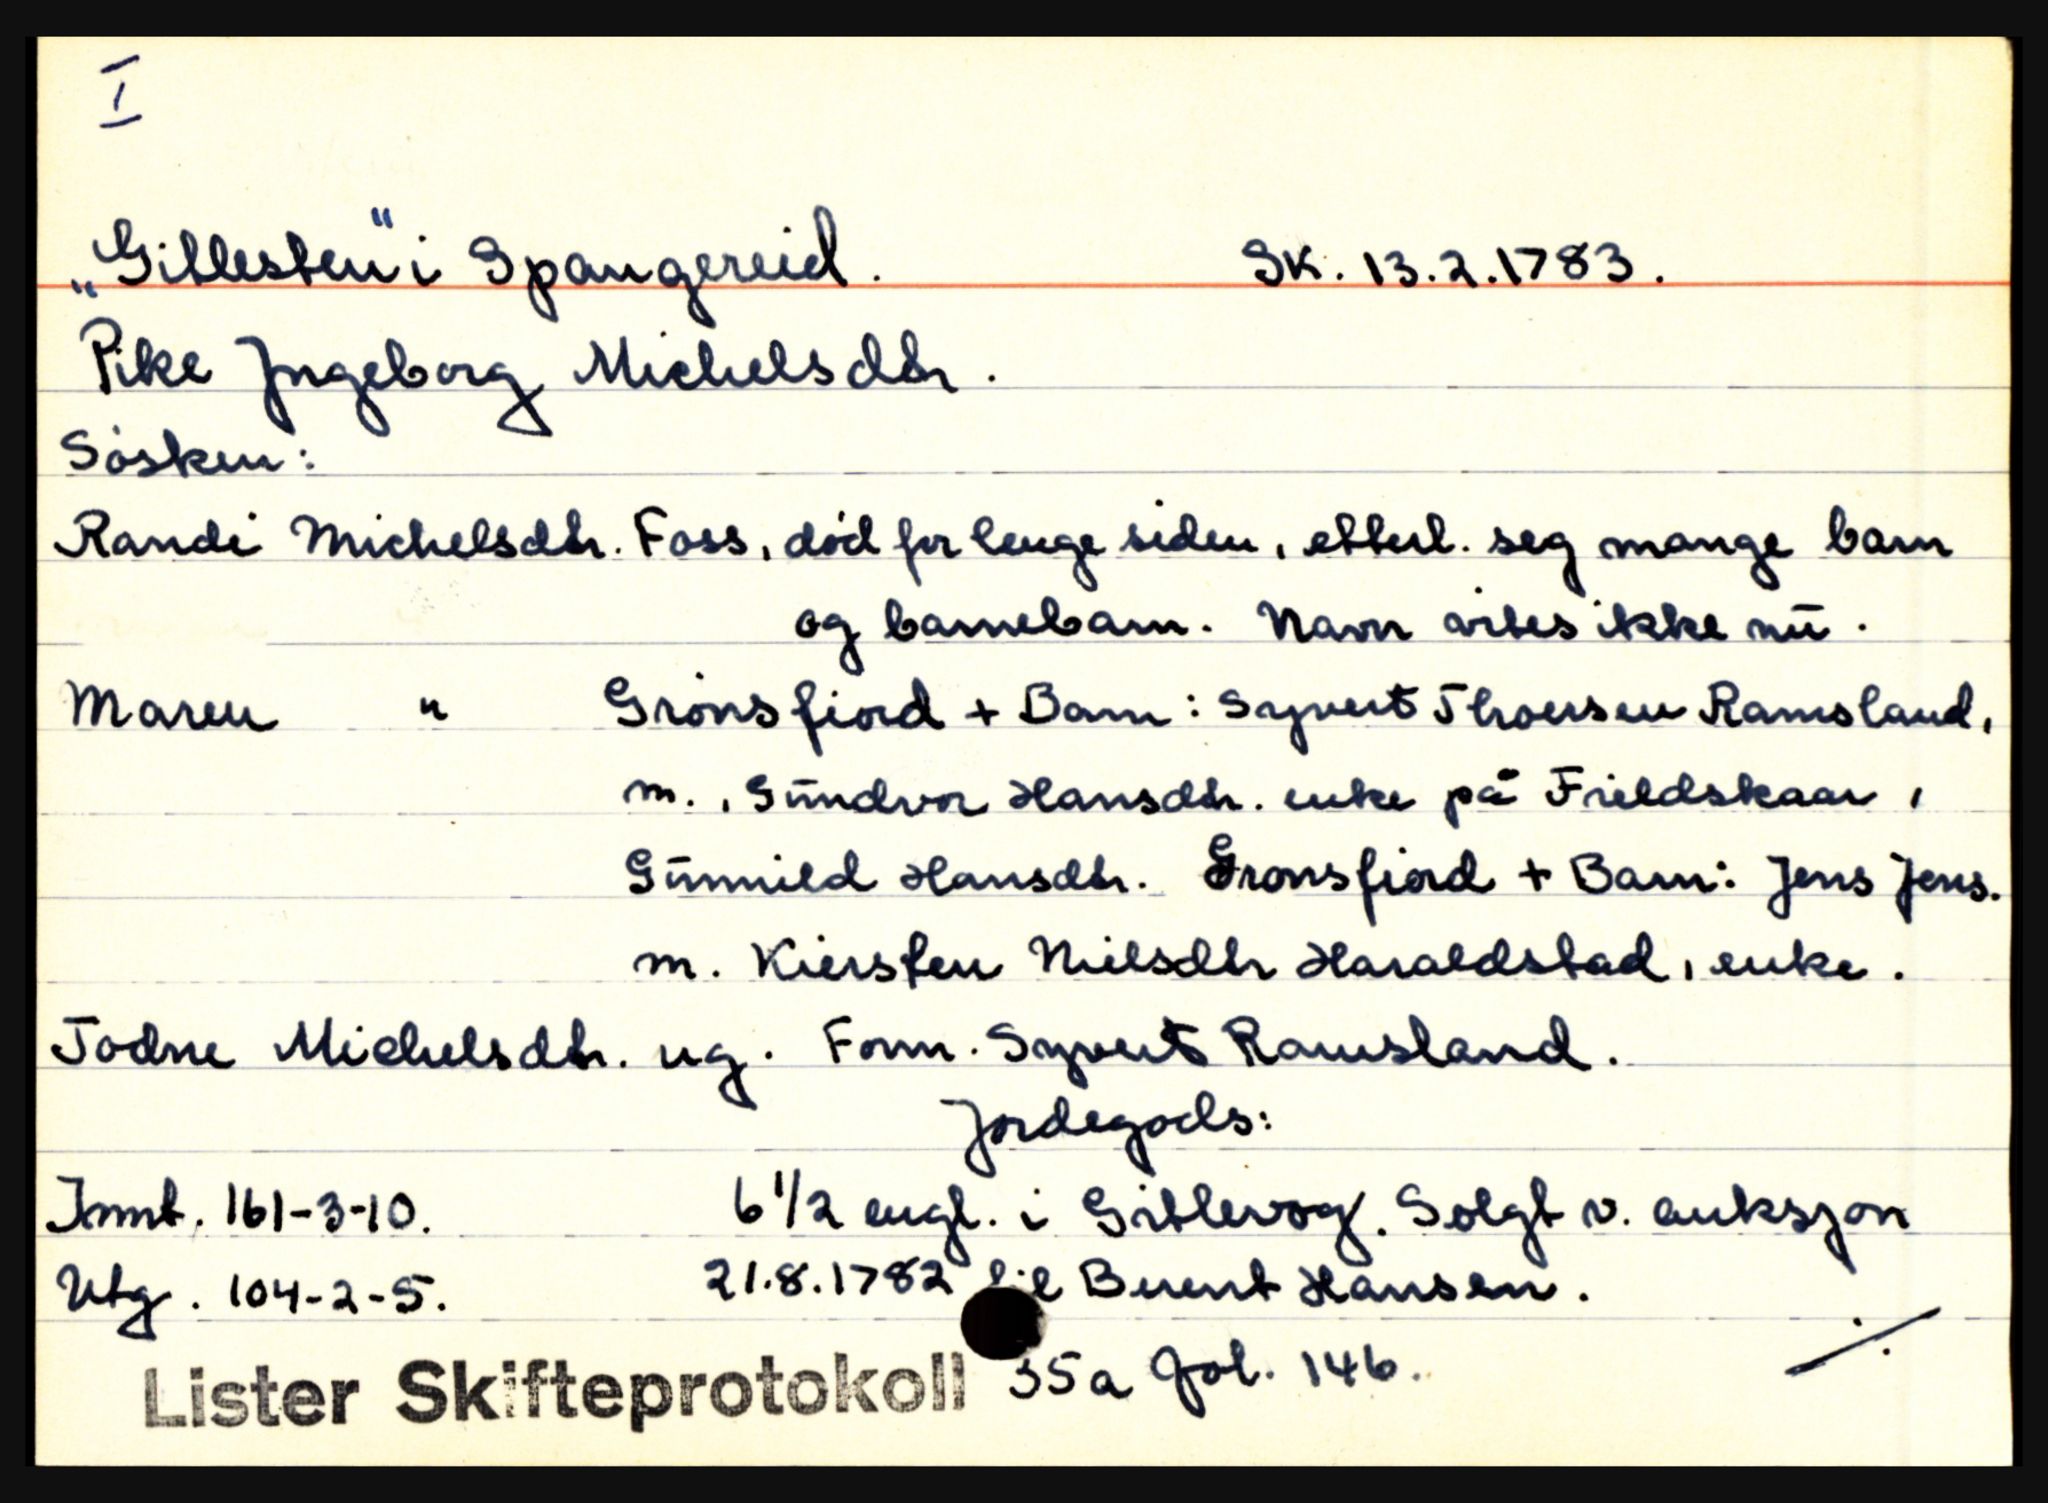 I
„Gitlesten" i Spangereid. Sk. 13.2.1783.
Pike Jngeborg Michelsdtr.
Søsken:
Randi Michelsdtr. Foss, död for lenge siden, etterl. seg mange barn
og barnebarn. Navn vites ikke nū.
Maren " Grönsfiord + Barn: Syvert Thoersen Ramsland,
m., Gūndvor Hansdtr. enke på Fieldskaar,
Gūnnild Hansdtr. Gronsfiord + Barn: Jens Jens.
m. Kiersten Nielsdtr Haraldstad, enke.
Todne Michelsdtr. ug. Form. Syvert Ramsland.
Jordegods:
Jnnt. 161-3-10. 6 1/2 engl. i Gitlevog. Solgt v. auksjon
Utg. 104-2-5. 21.8.1782 til Berent Hansen.
Lister Skifteprotokoll 35a fol. 146.